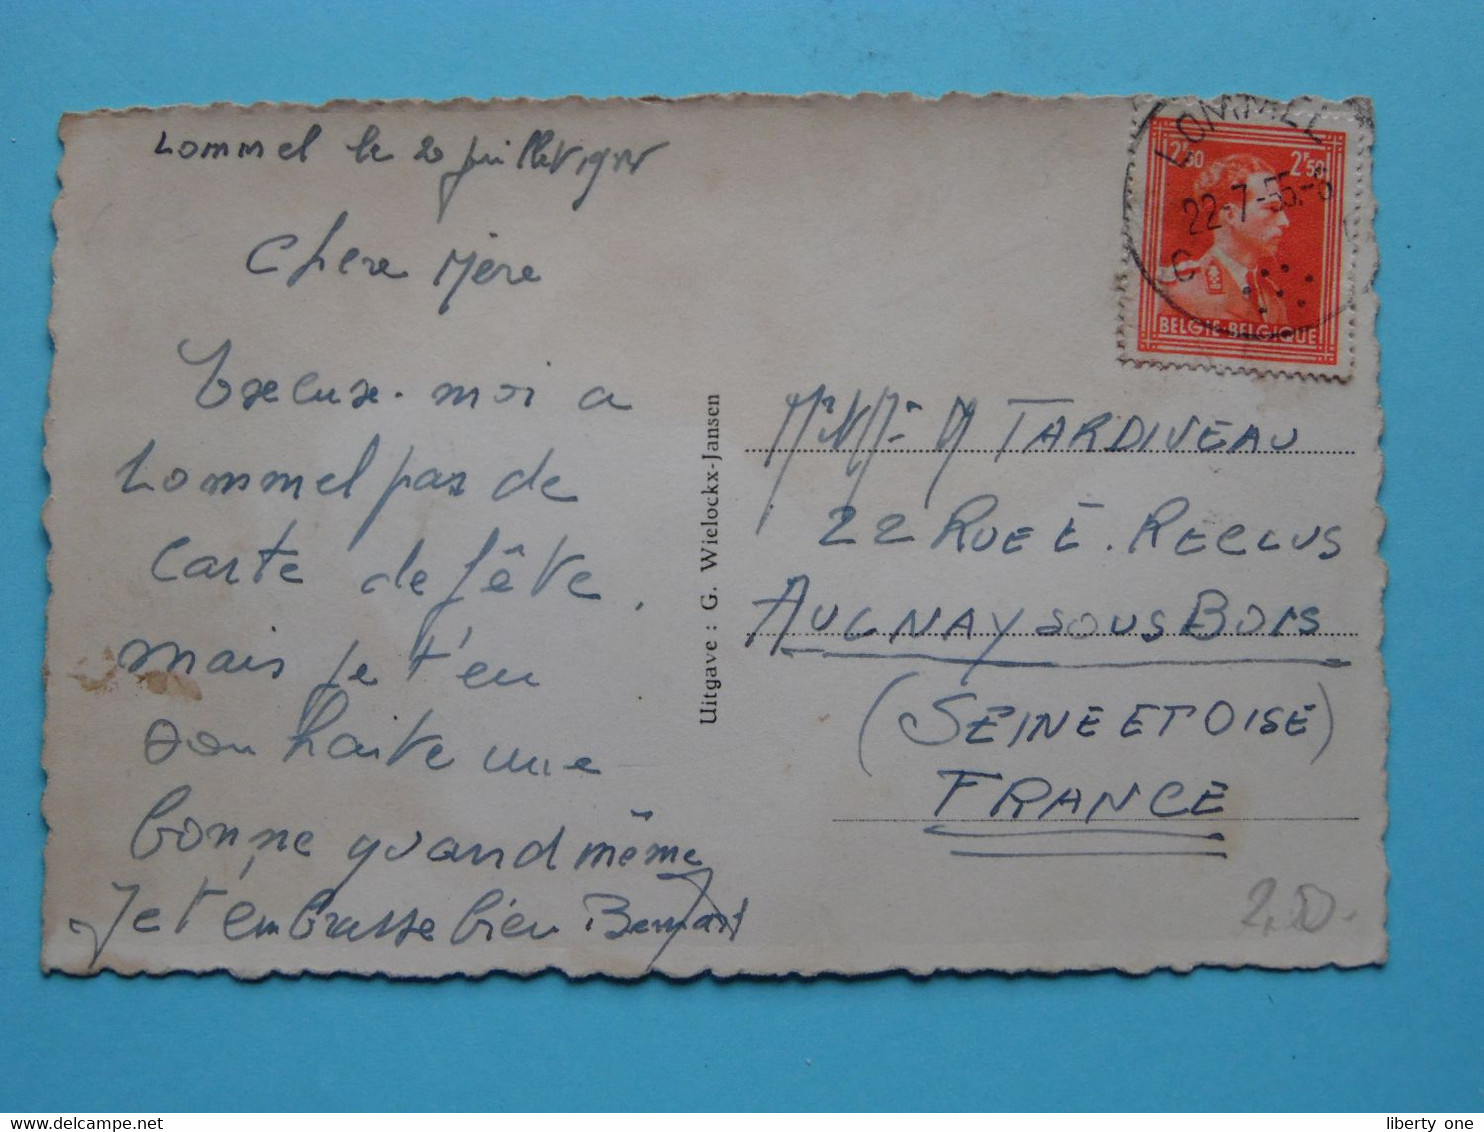 Lommel le 20 juillet 1955
Chere Mère
Excuse-moi a
Lommel pas de
carte de fête,
mais je t'en
souhaite une
bonne quand même
Je t'embrasse bien Bernard
Uitgave : G. Wielockx-Jansen
LOMMEL
22-7-55
2F50 2F50
BELGIE-BELGIQUE
TARDIVEAU
22 RUE E. RECLUS
AULNAY SOUS BOIS
(SEINE ET OISE)
FRANCE
2,50-
www.delcampe.net
liberty one